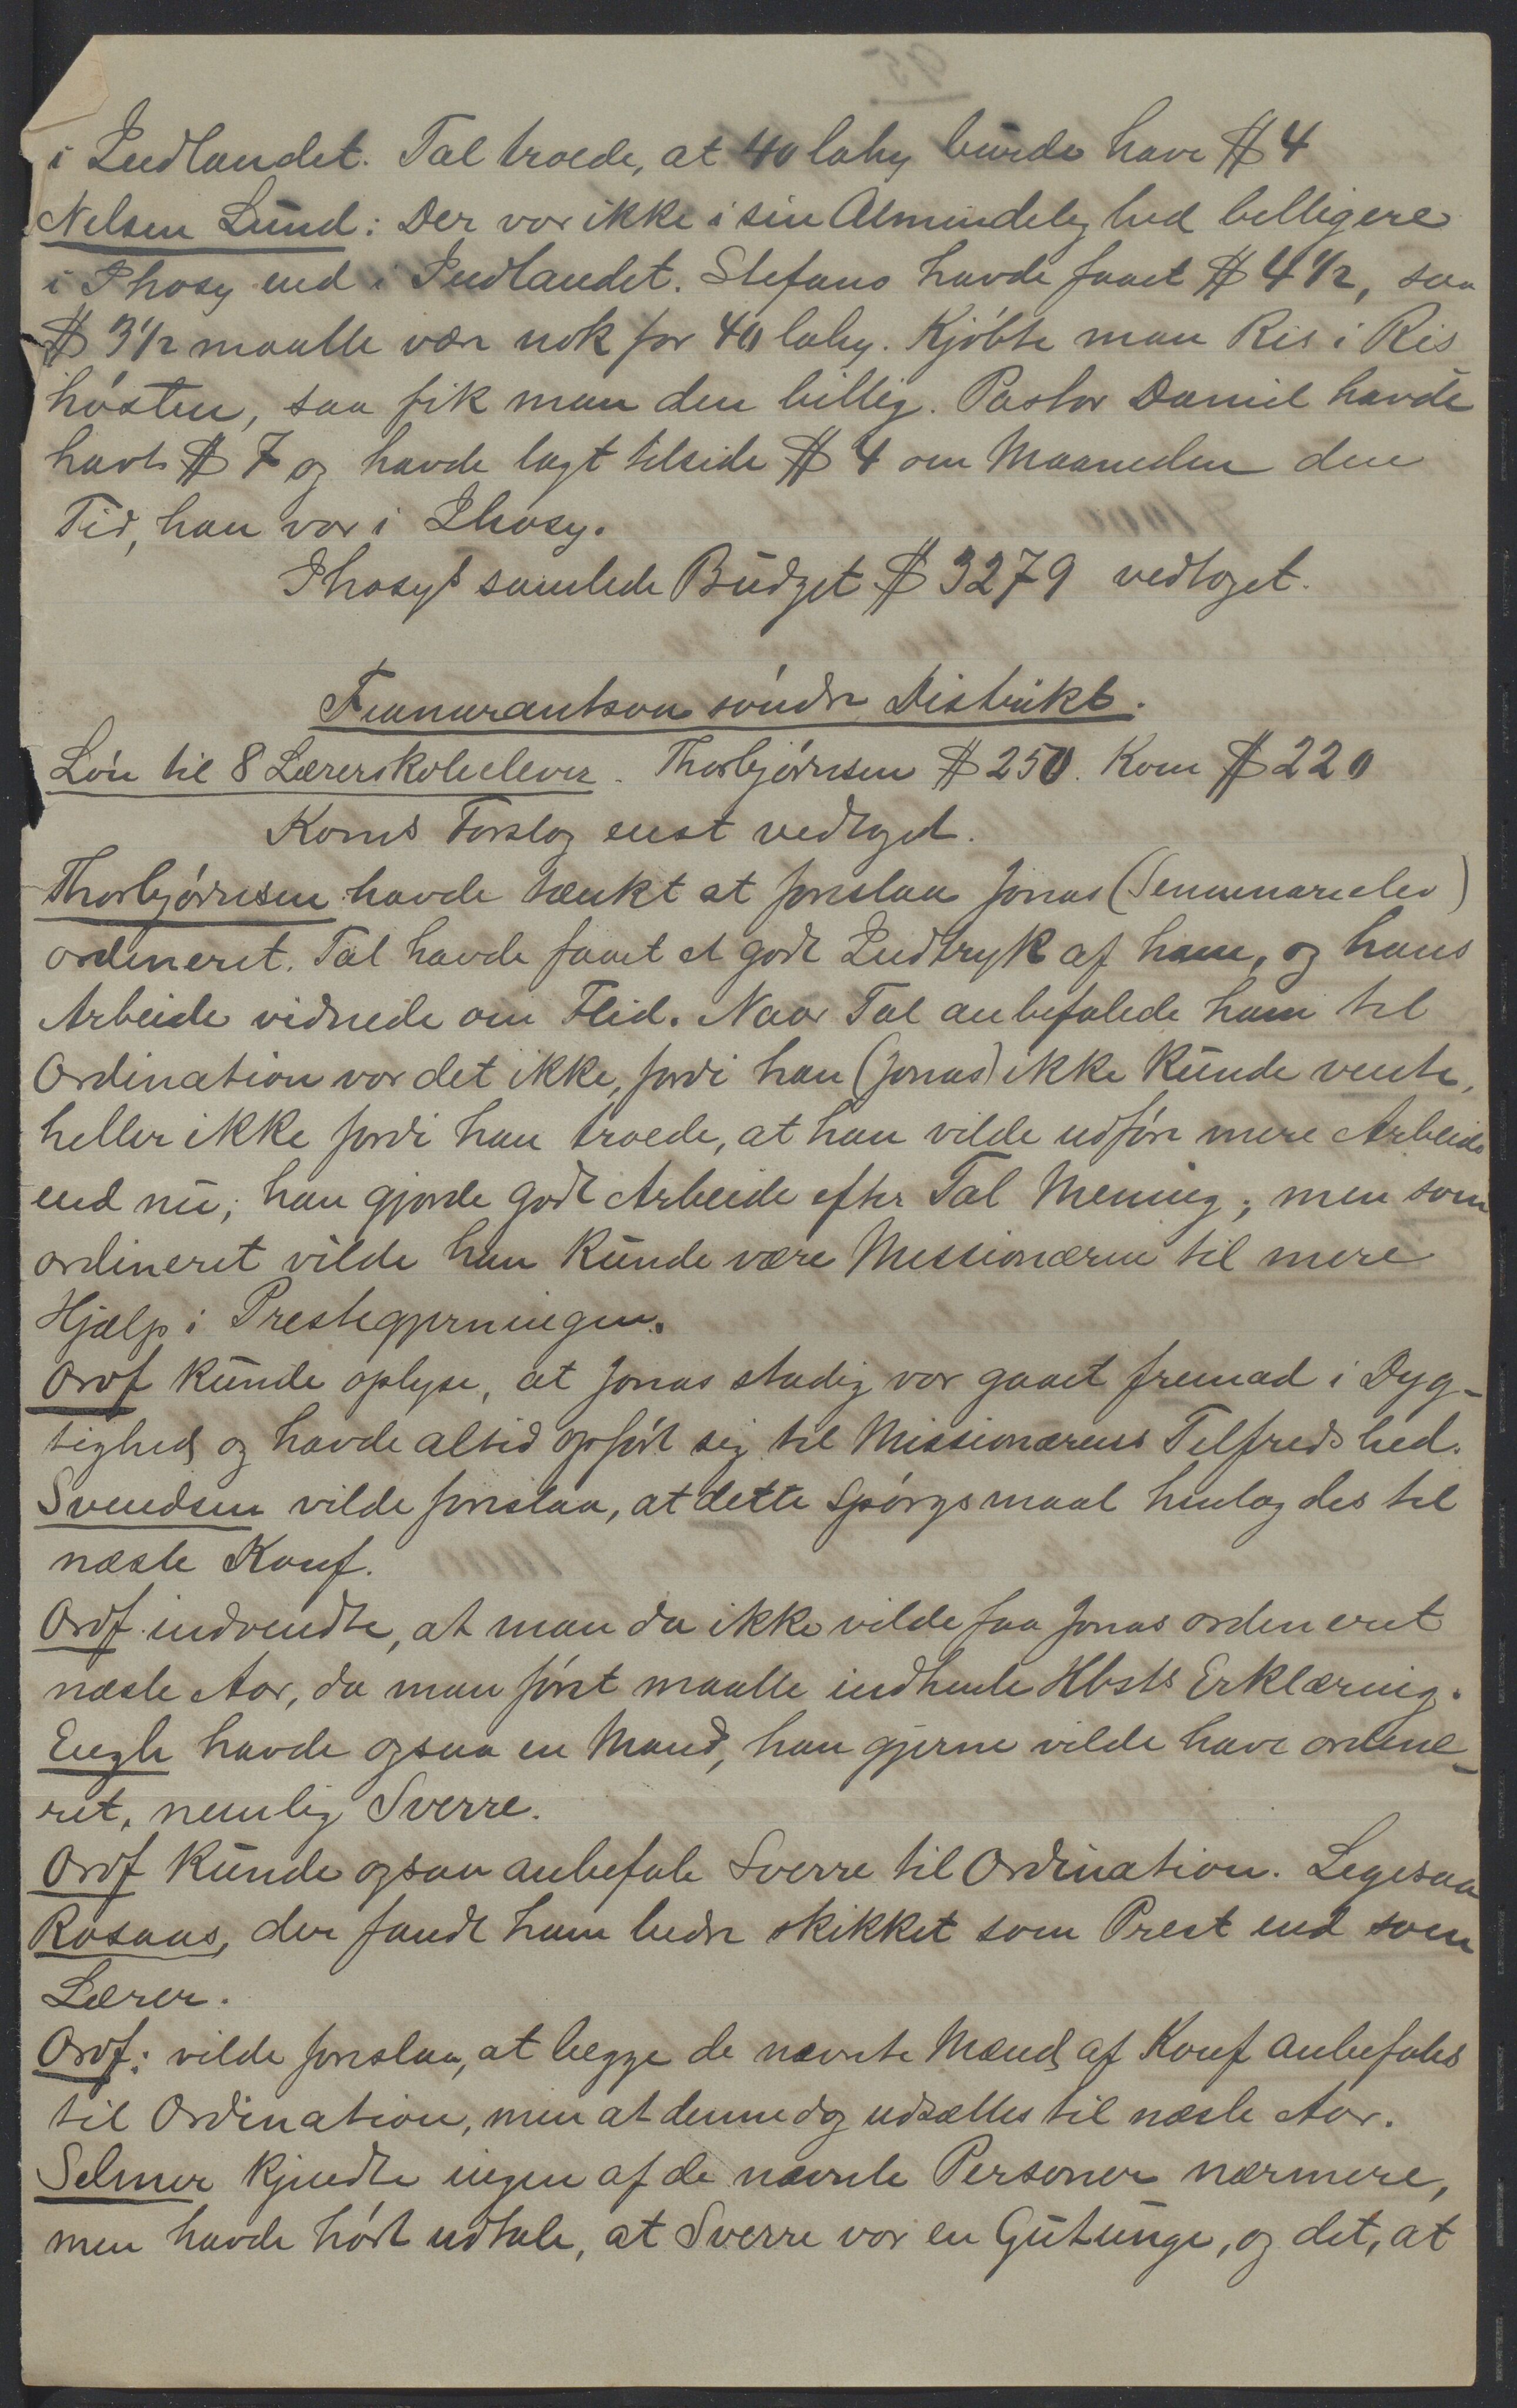 i Indlandet. Tal troede, at 40 lahy burde have $ 4
Nilsen Lund: Der var ikke i sin Almindelighed billigere
i Ihosy end i Indlandet. Stefano havde faaet $ 4 1/2, saa
$ 3 1/2 maatte være nok for 40 lahy. Kjöbte man Ris i Ris
hösten, saa fik man den billig. Pastor Daniel havde
havt $ 7 og havde lagt tilside $ 4 om Maaneden den
Tid, han var i Ihosy.
Ihosys samlede Budget $ 3279 vedtoget.
Fianarantsoa söndre Distrikt.
Lön til 8 Lærerskoleelever. Thorbjörnsen $ 250. Kom $ 220
Koms Forslag enst vedtaget.
Thorbjörnsen havde tænkt at foreslaa Jonas (Seminarielev)
ordineret. Tal havde faaet et godt Indtryk af ham, og hans
Arbeide vidnede om Flid. Naar Tal anbefalede ham til
Ordination var det ikke, fordi han (Jonas) ikke kunde vente,
heller ikke fordi han troede, at han vilde udföre mere Arbeide
end nu; han gjorde godt Arbeide efter Tal Mening; men som
ordineret vilde han kunde være Missionæren til mere
Hjælp i Prestegjerningen.
Ordf kunde oplyse, at Jonas stadig var gaaet fremad i Dyg-
tighed og havde altid opfört sig til Missionærens Tilfredshed.
Svendsen vilde foreslaa, at dette Spörgsmaal henlagdes til
næste Konf.
Ordf. indvendte, at man da ikke vilde faa Jonas ordineret
næste Aar, da man först maatte indhente Hbsts Erklæring.
Engh havde ogsaa en Mand, han gjerne vilde have ordine-
ret, nemlig Sverre.
Ordf kunde ogsaa anbefale Sverre til Ordination. Ligesaa
Rosaas, der fandt ham bedre skikket som Prest end som
Lærer.
Ordf: vilde foreslaa, at begge de nævnte Mænd af Konf anbefales
til Ordination, men at denne dog udsættes til næste Aar.
Selmer kjendte ingen af de nævnte Personer nærmere,
men havde hört udtale, at Sverre var en Gutunge, og det, at